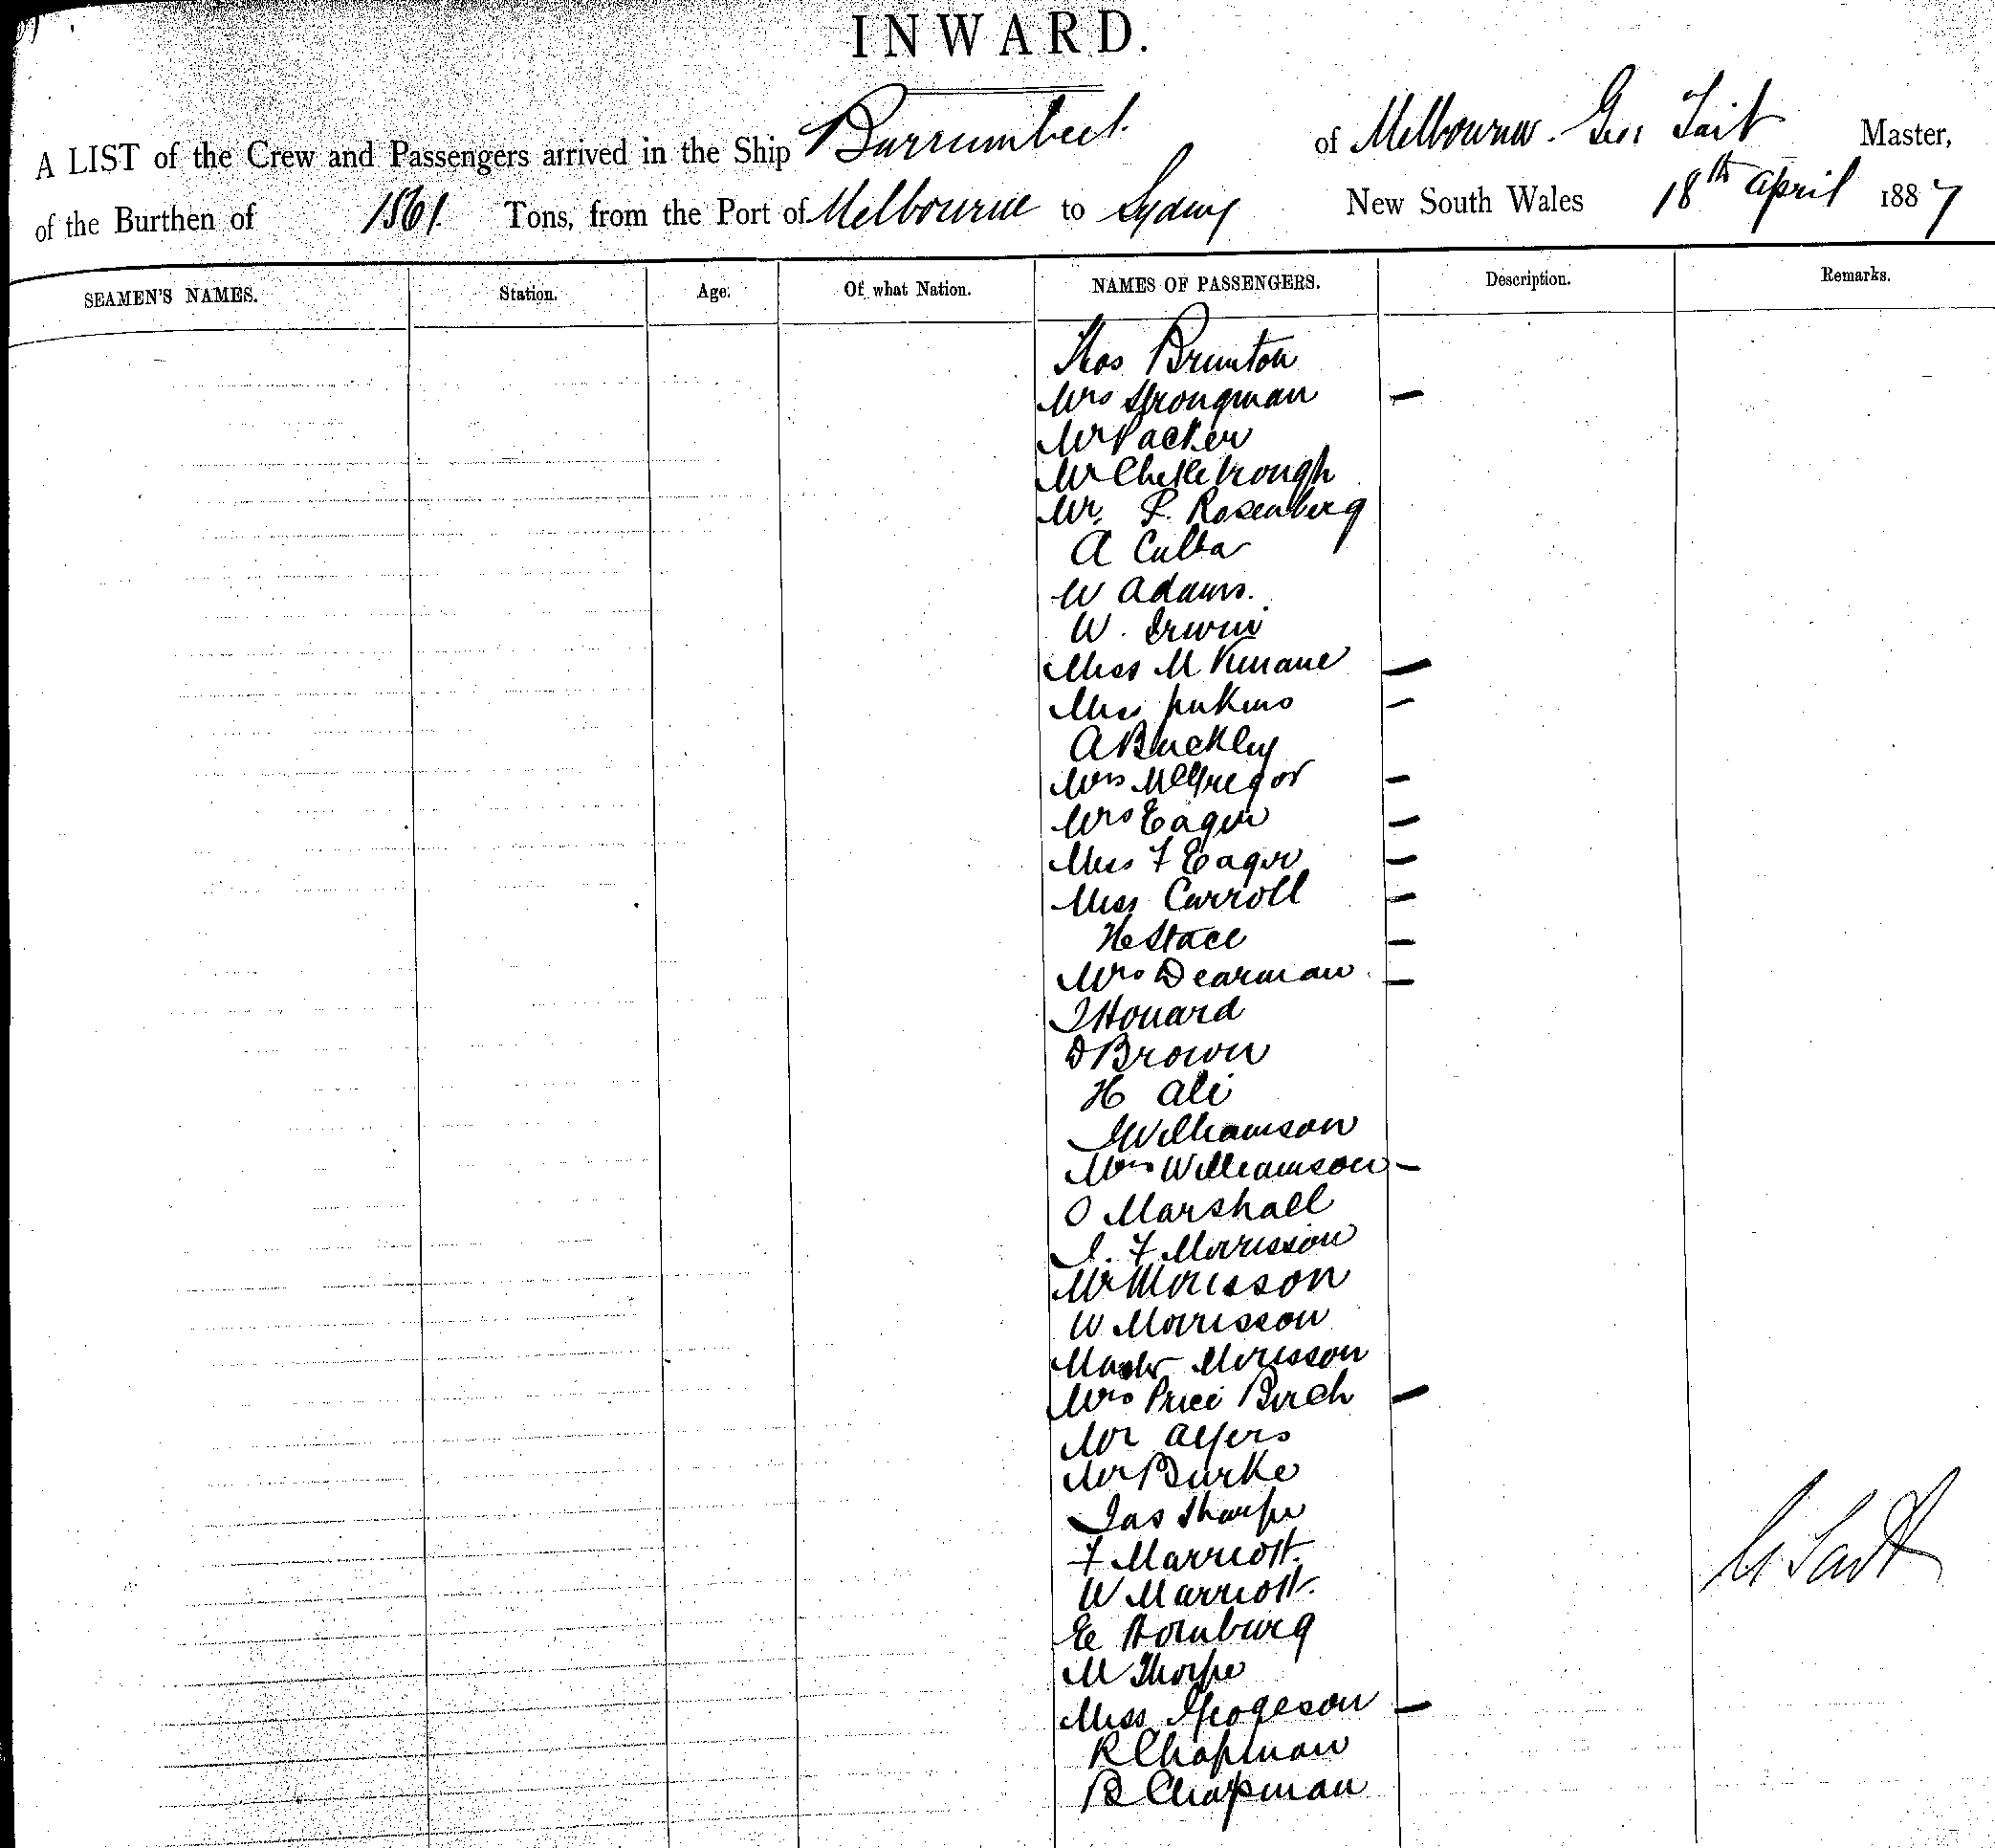 INWARD.
A LIST of the Crew and Passengers arrived in the Ship Burrumbeet. of Melbourne. Geo Tait Master,
of the Burthen of Tons, from the Port of Melbourne to Sydney New South Wales 18th April 1887
SEAMEN'S NAMES. Station. Age. Of what Nation. NAMES OF PASSENGERS. Description. Remarks.
Thos Brunton
Mrs Strongman —
Mr Packer
Mr
Mr. Rosenberg
A
W Adams.
W. Irwin
Miss M Kinane —
Miss Jenkins —
A Buckley
Mrs McGregor —
Mrs Eager —
Miss F Eager —
Miss Carroll —
H Stace —
Mrs Dearman —
J Howard
D Brown
H Ali
J Williamson
Mrs Williamson —
O Marshall
J. F Morrisson
Mr Morisson
W Morrisson
Master Morisson
Mrs Price Birch —
Mr
Mr Burke
Jas Sharpe
F Marriott.
W Marriott.
E Homburg
M Thorpe
Miss —
R Chapman
B Chapman
G. Tait